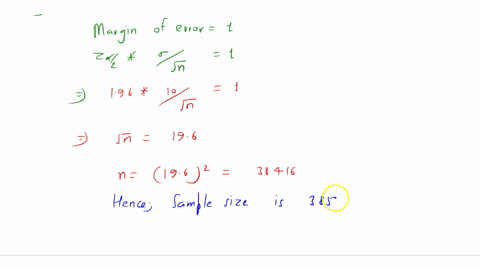 Margin of error = 1
zα/2 * σ/√n = 1
⇒ 1.96 * 10/√n = 1
⇒ √n = 19.6
n = (19.6)² = 38416
Hence; Sample size is 385